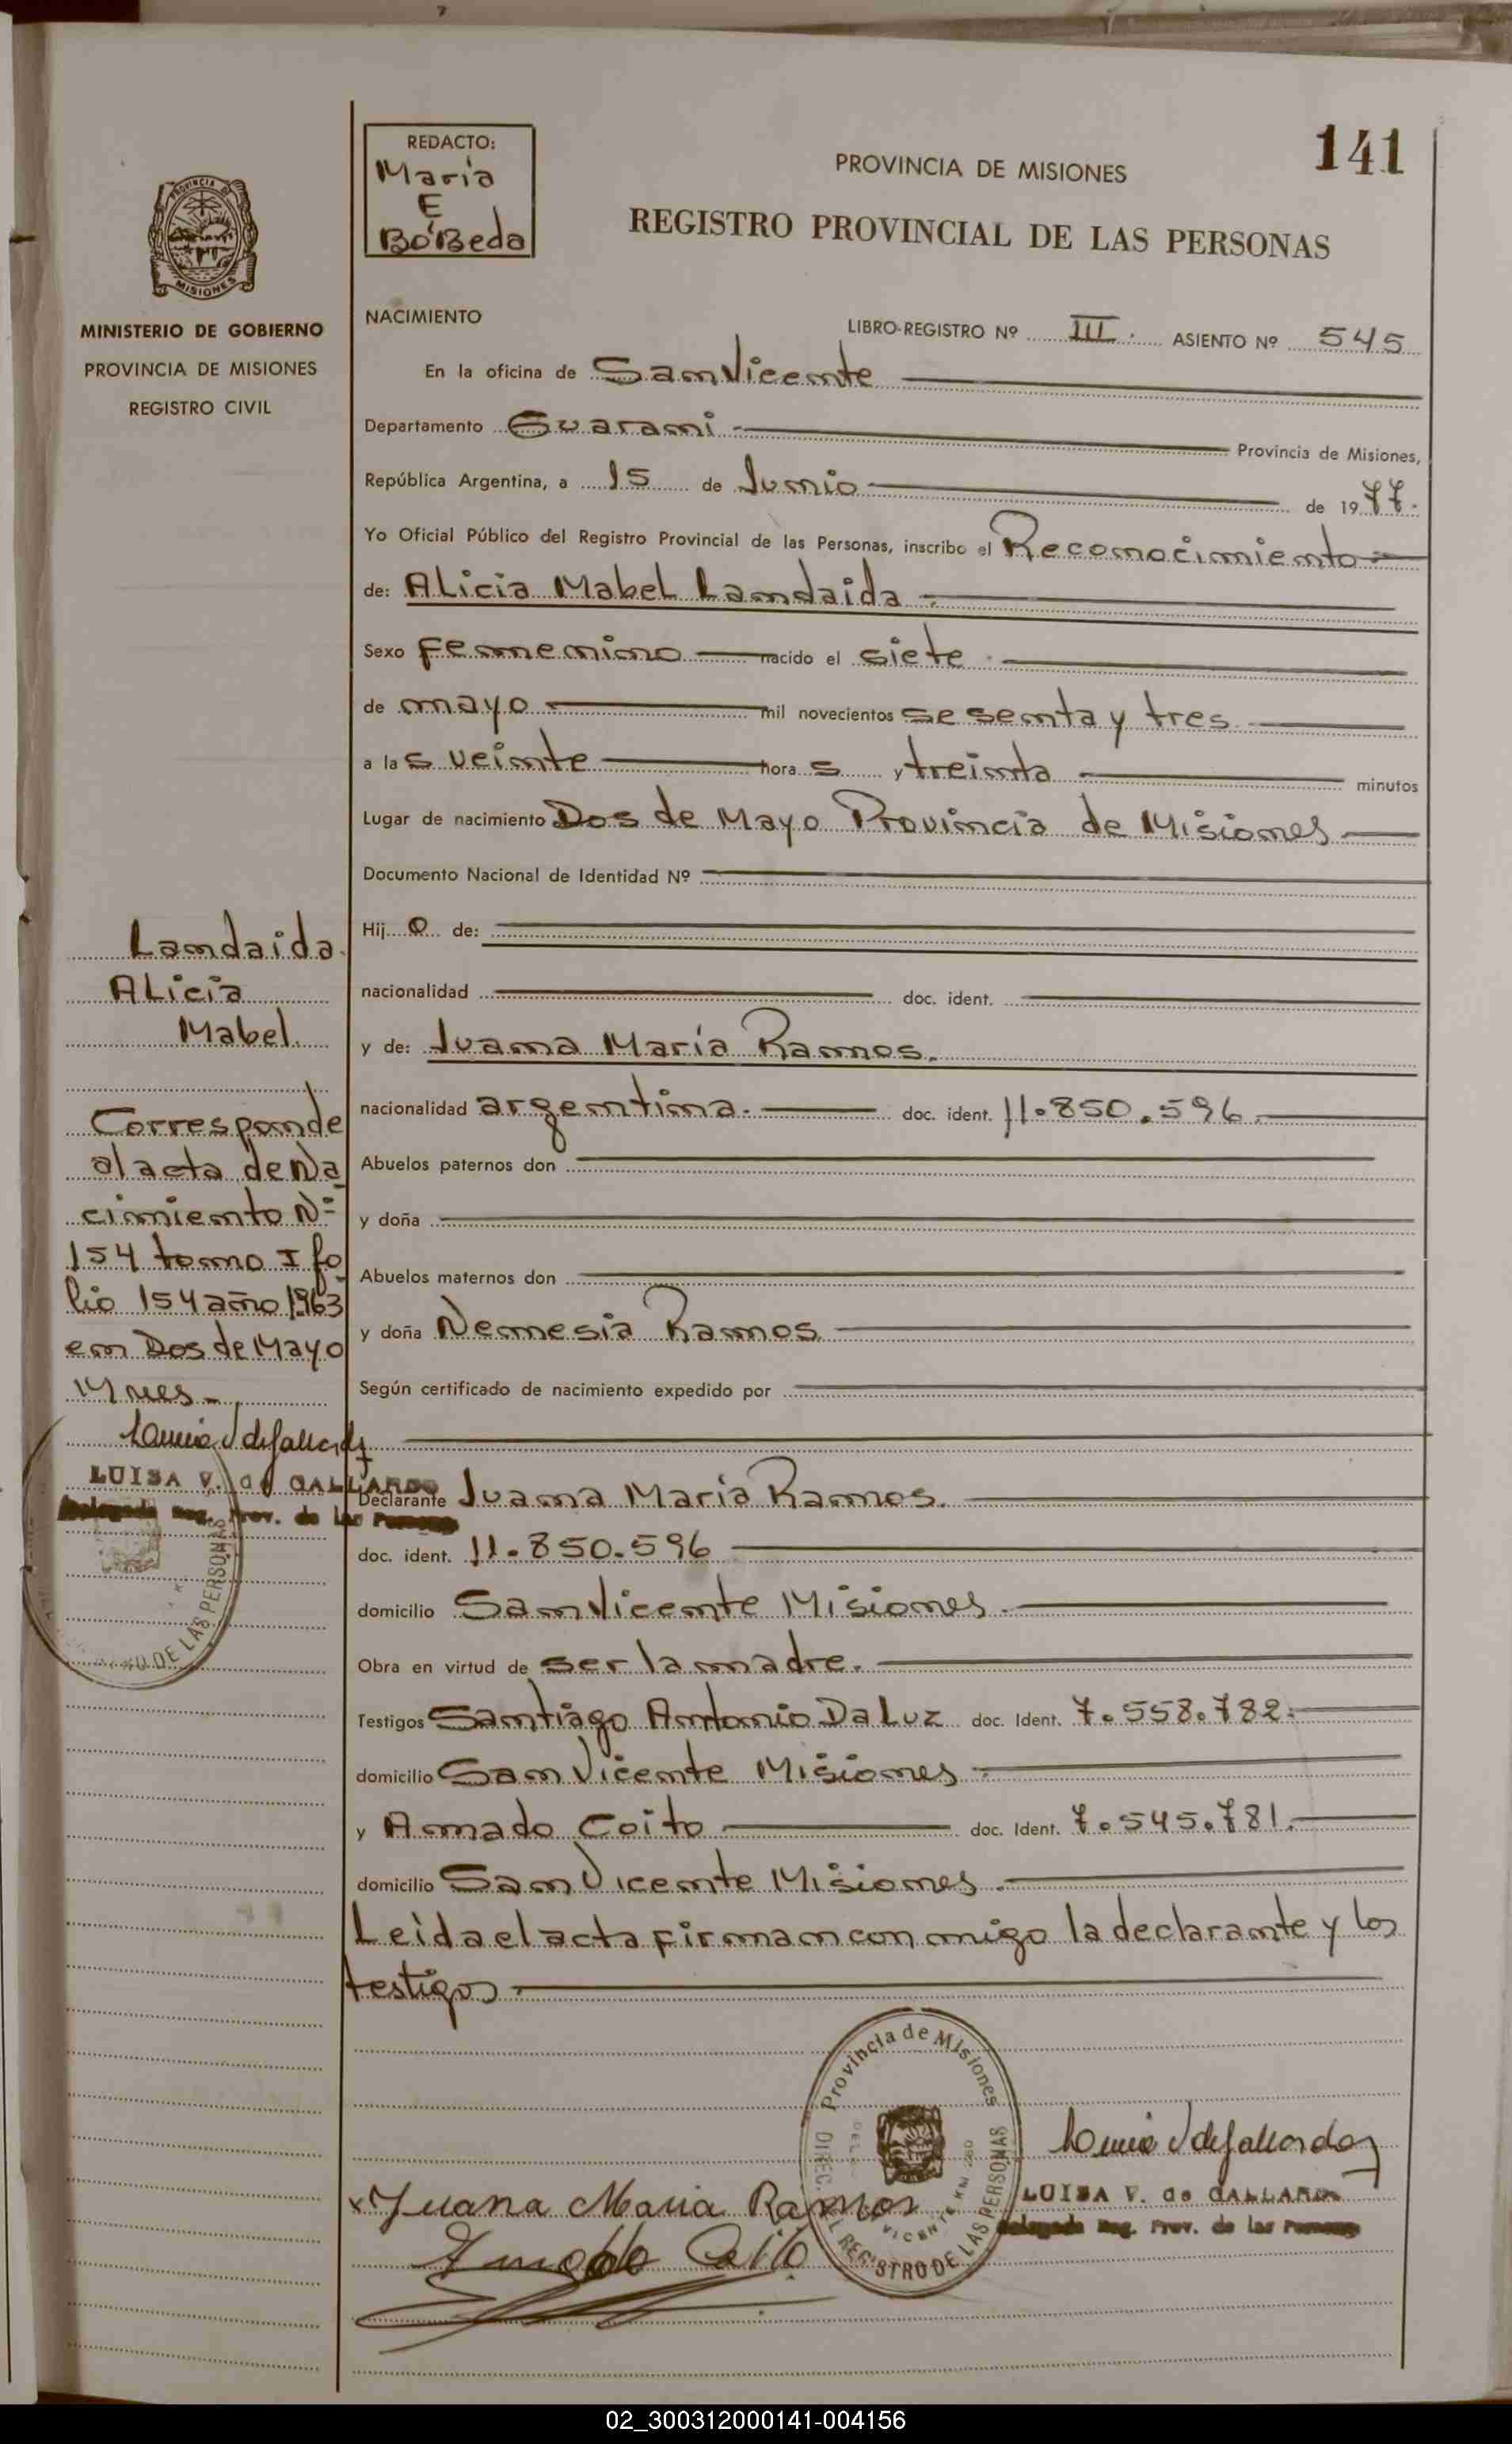 141
REDACTO:
Maria
E
BóBeda
PROVINCIA DE MISIONES
REGISTRO PROVINCIAL DE LAS PERSONAS
PROVINCIA DE
MISIONES
MINISTERIO DE GOBIERNO
PROVINCIA DE MISIONES
REGISTRO CIVIL
NACIMIENTO
LIBRO-REGISTRO Nº III. ASIENTO Nº 545
En la oficina de San Vicente
Departamento Guarani Provincia de Misiones,
República Argentina, a 15 de Junio de 1977.
Yo Oficial Público del Registro Provincial de las Personas, inscribo el Reconocimiento
de: Alicia Mabel Landaida
Sexo Femenino nacido el siete
de mayo mil novecientos sesenta y tres
a las veinte horas y treinta minutos
Lugar de nacimiento Dos de Mayo Provincia de Misiones
Documento Nacional de Identidad Nº
Hijo de:
nacionalidad doc. ident.
y de: Juana Maria Ramos.
nacionalidad argentina. doc. ident. 11.850.596.
Abuelos paternos don
y doña
Abuelos maternos don
y doña Nemesia Ramos
Según certificado de nacimiento expedido por
Declarante Juana Maria Ramos.
doc. ident. 11.850.596
domicilio San Vicente Misiones.
Obra en virtud de ser la madre.
Testigos Santiago Antonio Da Luz doc. Ident. 7.558.782.
domicilio San Vicente Misiones
y Amado Coito doc. Ident. 7.545.781.
domicilio San Vicente Misiones.
Leida el acta firman con migo la declarante y los
testigos
Landaida
Alicia
Mabel.
Corresponde
al acta de Na
cimiento Nº
154 tomo I fo
lio 154 año 1963
en Dos de Mayo
Mnes.
LUISA V. de GALLARDO
Delegada Reg. Prov. de las Personas
DE LAS PERSONAS
Provincia de Misiones
REGISTRO DE LAS PERSONAS
VICENTE
Juana Maria Ramos
Amado Coito
LUISA V. de GALLARDO
Delegada Reg. Prov. de las Personas
02_300312000141-004156